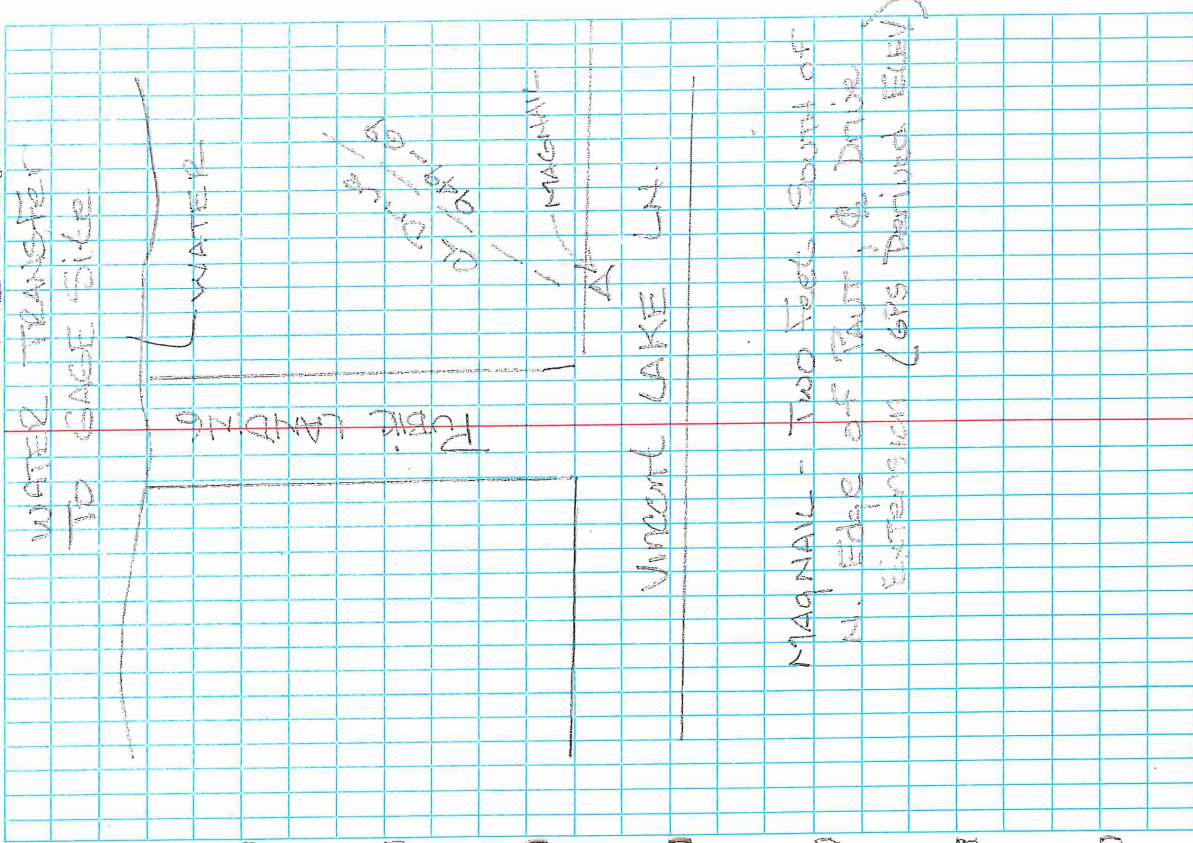 WATER TRANSFER
TO GAGE Site
WATER
PUBIC LANDING
MAGNAIL
Vincent LAKE LN.
MAGNAIL - TWO Feet South of
N. Edge of
Extension (GPS Derived Elev)